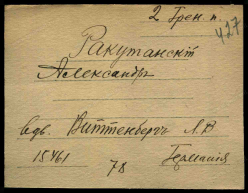 2 Грен. п.
427
Ракутанскiй
Александръ
вдв. Виттенбергъ Л. В
15461
78
Германiя